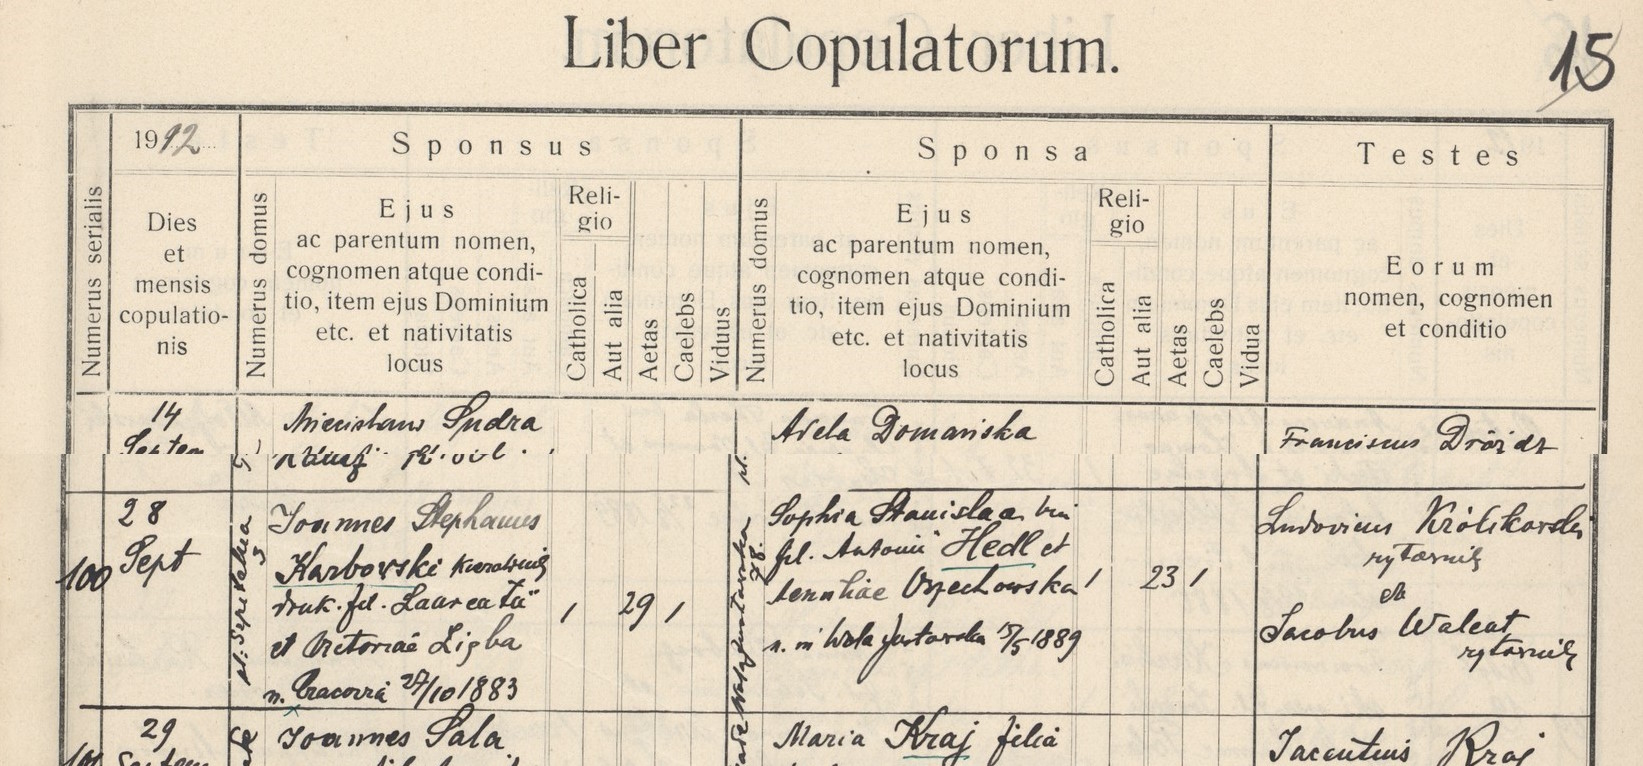 Liber Copulatorum.
15
1912
Sponsus
Sponsa
Testes
Numerus serialis
Dies
et
mensis
copulatio-
nis
Numerus domus
Ejus
ac parentum nomen,
cognomen atque condi-
tio, item ejus Dominium
etc. et nativitatis
locus
Reli-
gio
Catholica
Aut alia
Aetas
Caelebs
Viduus
Numerus domus
Ejus
ac parentum nomen,
cognomen atque condi-
tio, item ejus Dominium
etc. et nativitatis
locus
Reli-
gio
Catholica
Aut alia
Aetas
Caelebs
Vidua
Eorum
nomen, cognomen
et conditio
14
Septem
Mieczislaus
Adela Domańska
Franciscus Dróżdż
100
28
Sept
3
Joannes Stephanus
Karbowski
druk. fil. Laureatii
et Victoriae Ligba
n. Cracovia 27/10 1883
/ 29 /
78.
Sophia Stanislaa
fil. Antonii Hedl et
Orzechowska
n. in Wola Justowska 15/5 1889
/ 23 /
Ludovicus Królikowski
rytownik
et
Jacobus Walcat
rytownik
29
Septem
Joannes Sala
Maria Kraj filia
Jacentius Kraj